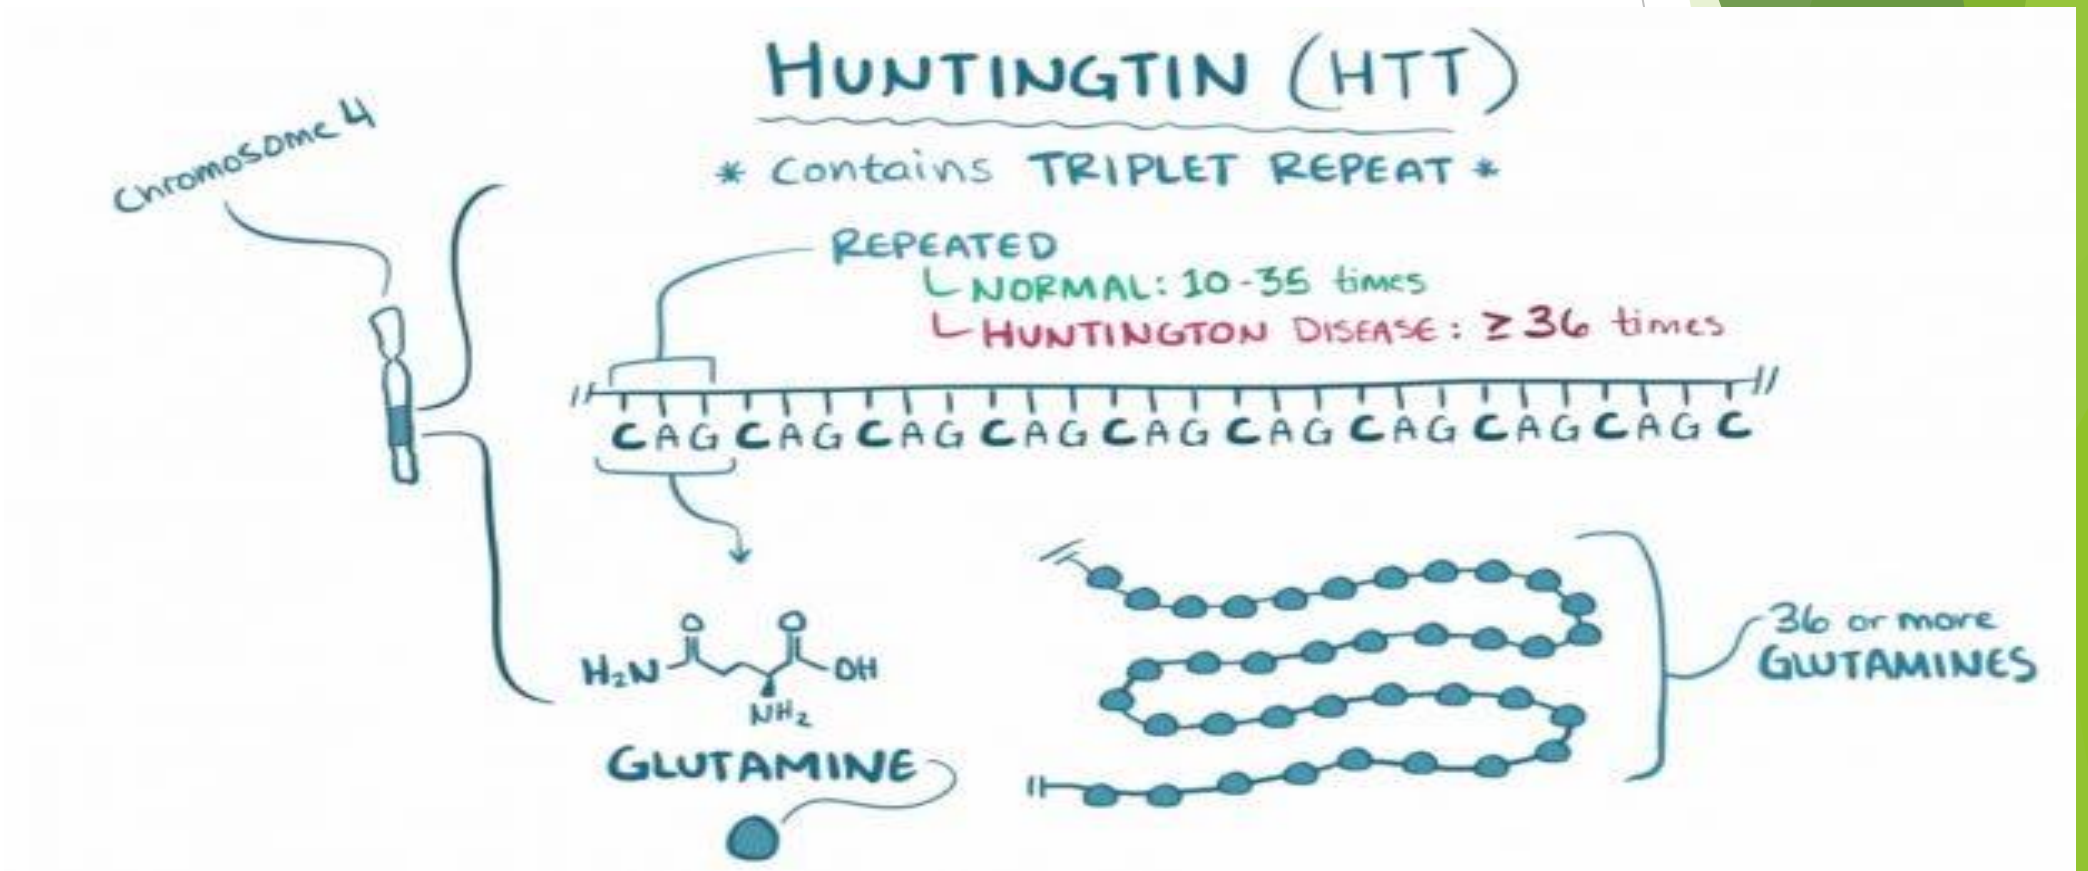 HUNTINGTIN (HTT)
Chromosome 4
* Contains TRIPLET REPEAT *
REPEATED
NORMAL: 10-35 times
HUNTINGTON DISEASE: ≥36 times
CAGCAGCAGCAGCAGCAGCAGCAGCAGC
O O
H₂N OH
NH₂
GLUTAMINE
36 or more
GLUTAMINES